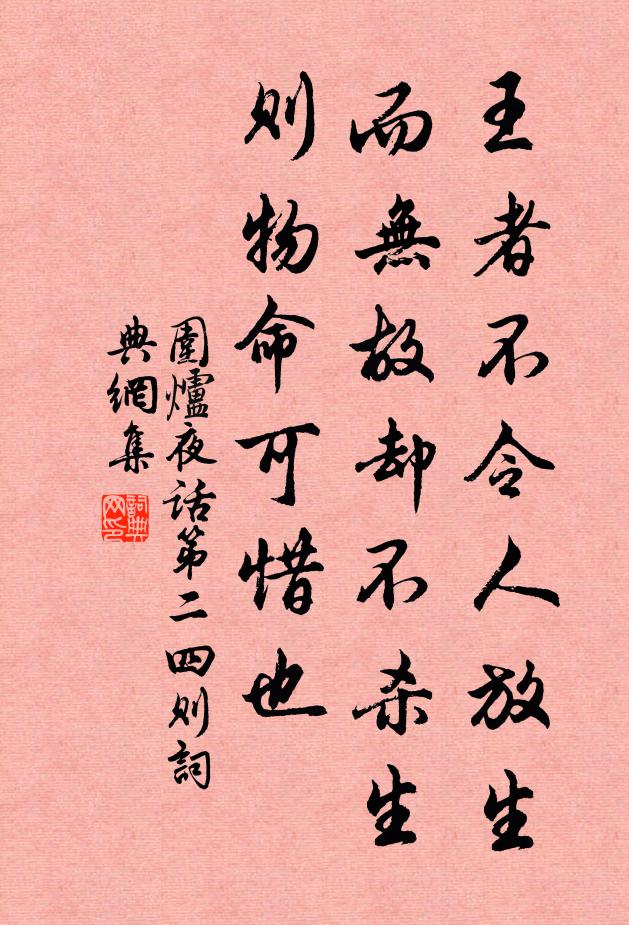 王者不令人放生
而無故却不杀生
则物命可惜也
圍爐夜话第二四则詞
典網集
詞典
网印